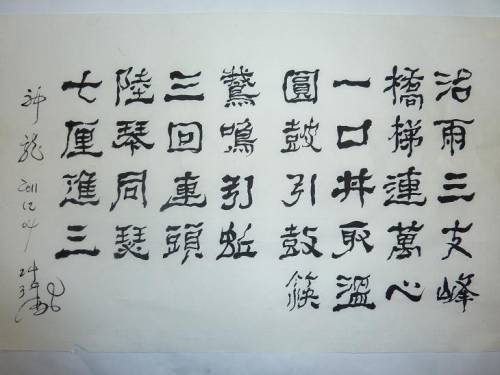 沿雨三支峰
橋梯連萬心
一口井取溫
圓鼓引鼓
鳴引蚯
三回車頭
陸琴同瑟
七厘進三
神龍 2011 12 04